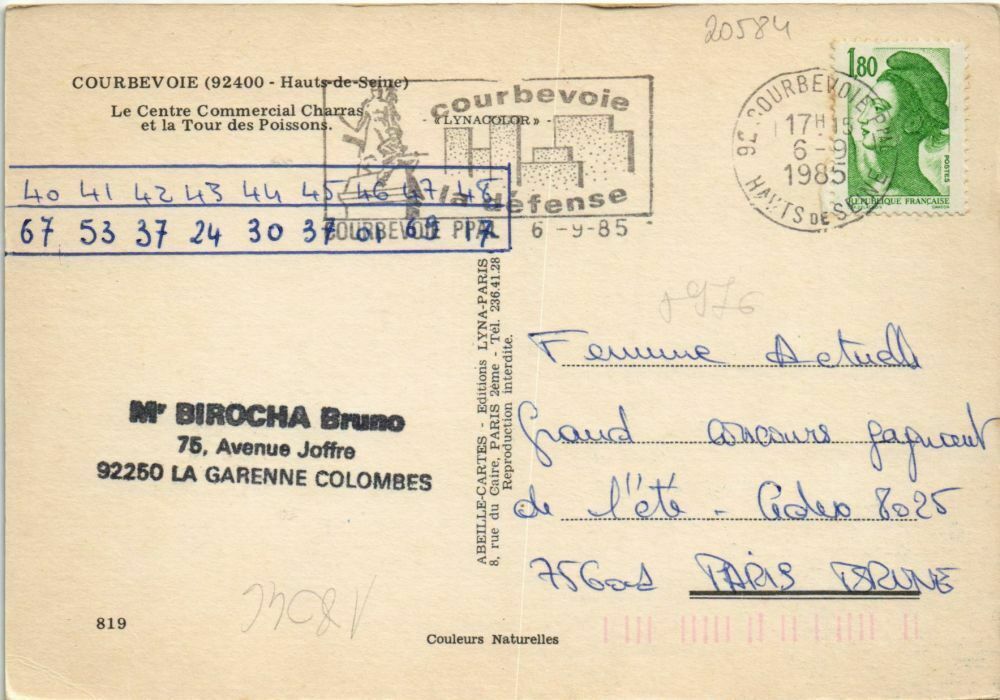 20584
COURBEVOIE (92400 - Hauts-de-Seine)
Le Centre Commercial Charras
et la Tour des Poissons.
- «LYNACOLOR» -
courbevoie
la défense
COURBEVOIE PPAL 6-9-85
92 COURBEVOIE PPAL
17H15
6-9
1985
HAUTS DE SEINE
1,80
POSTES
REPUBLIQUE FRANÇAISE
40 41 42 43 44 45 46 47 48
67 53 37 24 30 37 01 69 17
Mr BIROCHA Bruno
75, Avenue Joffre
92250 LA GARENNE COLOMBES
ABEILLE-CARTES - Editions LYNA-PARIS
8, rue du Caire, PARIS 2ème - Tél. 236.41.28
Reproduction interdite.
Femme Actuelle
Grand concours gagnant
de l'été - Cedex 8025
PARIS BRUNE
819
Couleurs Naturelles